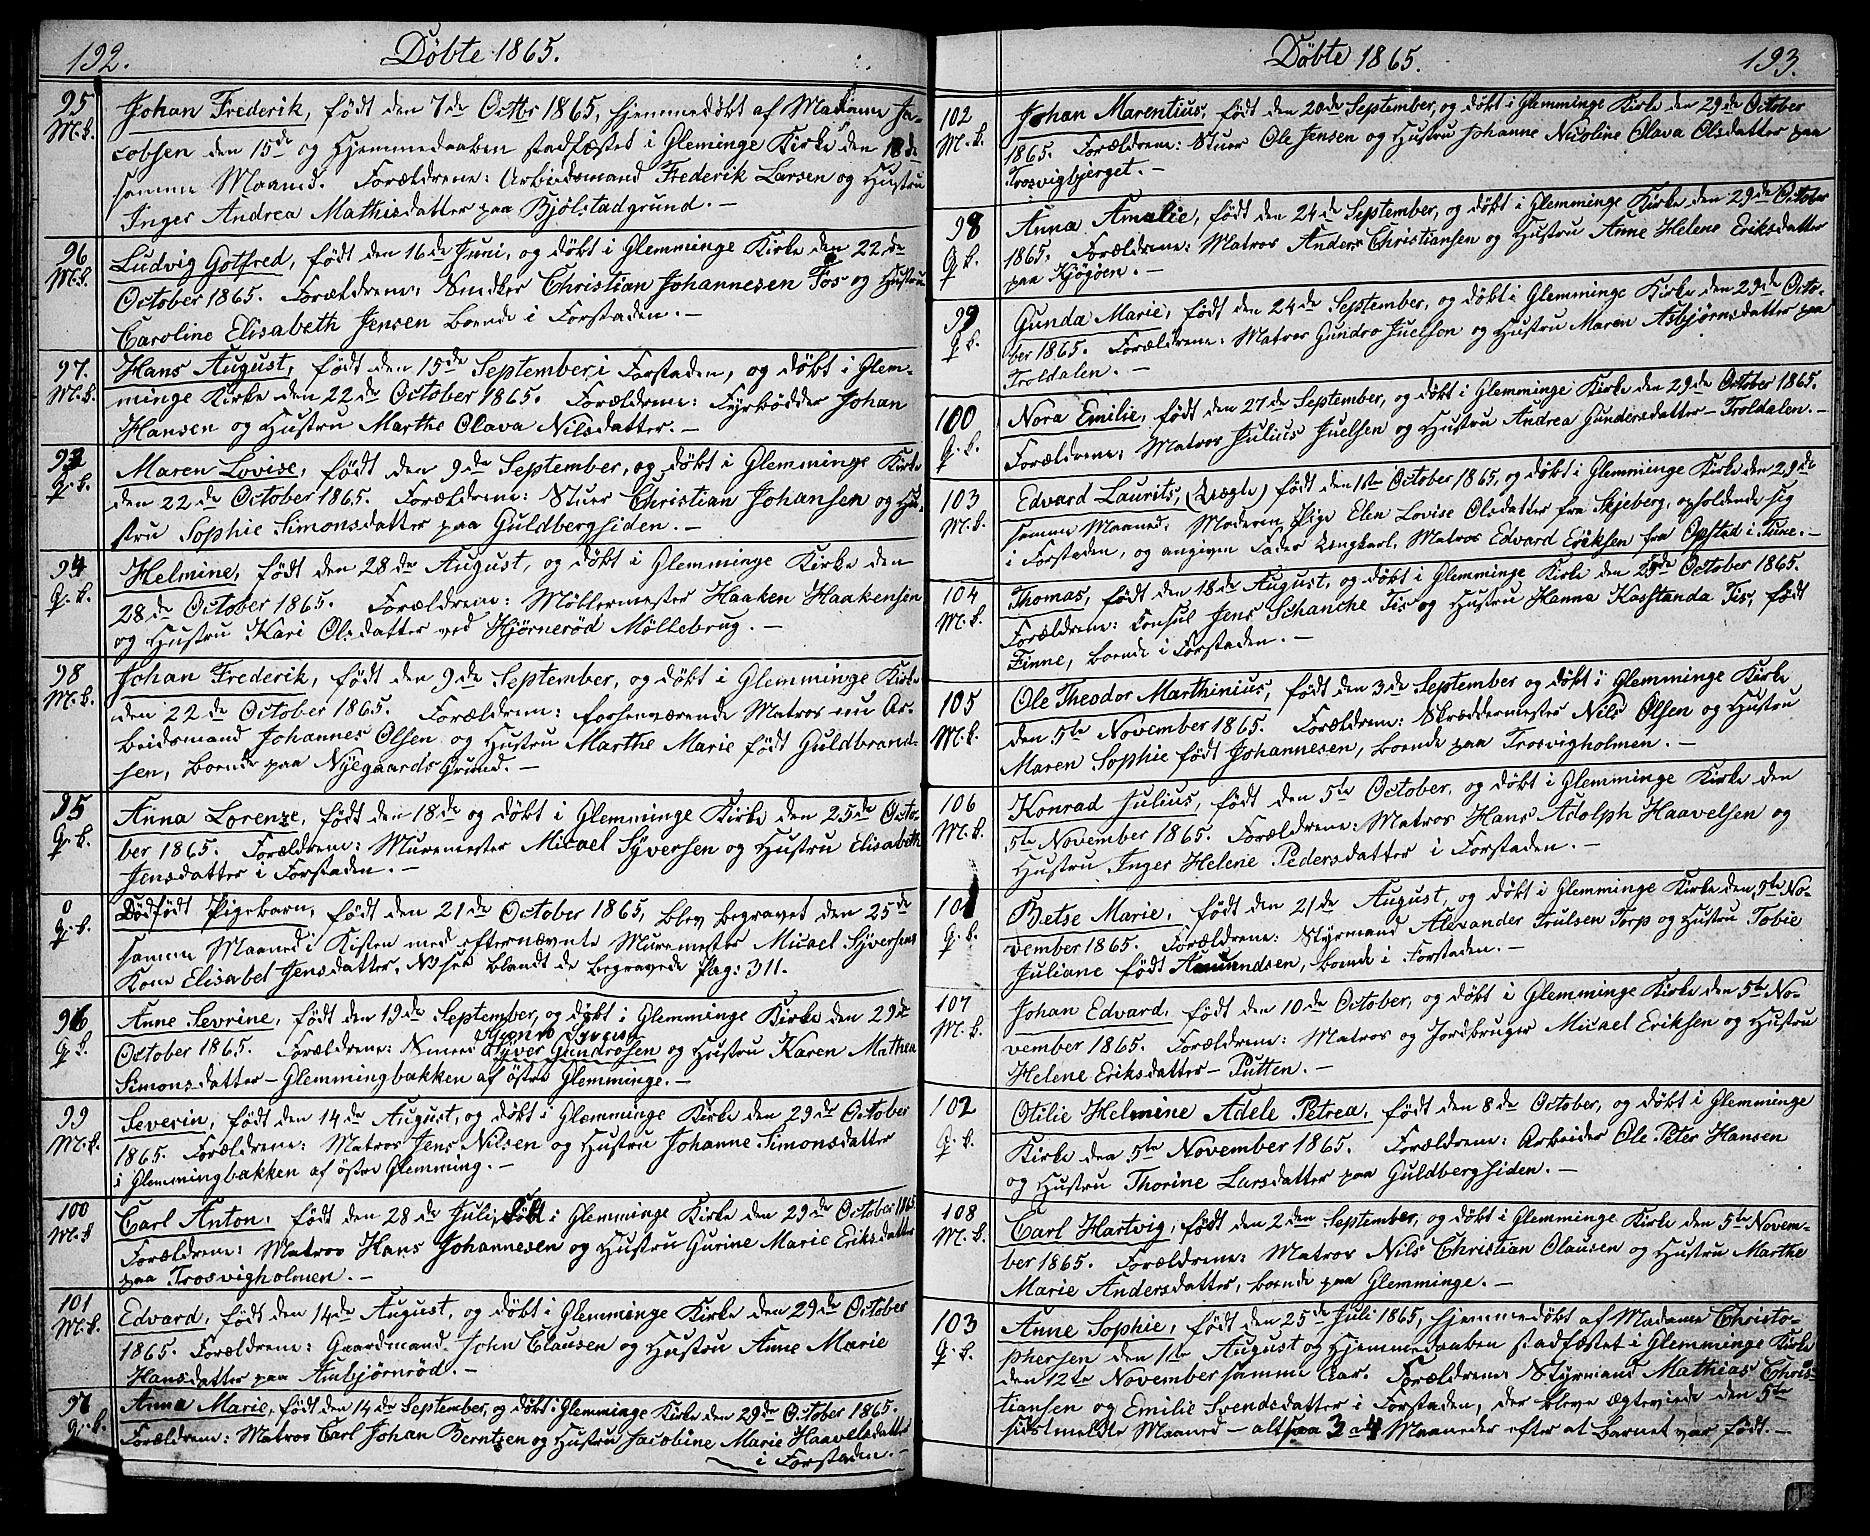 192.
Döbte 1865.
95
M.k.
Johan Frederik, født den 7de Octbr 1865, hjemmedøbt af Madame Ja-
cobsen den 15de og Hjemmedaaben stadfæstet i Gleminge Kirke den 18de
samme Maaned. Forældrene: Arbeidsmand Frederik Larsen og Hustru
Inger Andrea Mathisdatter paa Bjölstadgrund. –
96
M.k.
Ludvig Gotfred, født den 16de Juni, og døbt i Glemminge Kirke den 22de
October 1865. Forældrene: Snedker Christian Johannesen Fos og Hustru
Caroline Elisabeth Jensen boende i Forstaden. –
97.
M.k.
Hans August, født den 15de September i Forstaden, og døbt i Glem-
minge Kirke den 22de October 1865. Forældrene: Fyrbødder Johan
Hansen og Hustru Marthe Olava Nilsdatter. –
93
Q.k.
Maren Lovise, født den 9de September, og døbt i Glemminge Kirke
den 22de October 1865. Forældrene: Stuer Christian Johansen og Hu-
stru Sophie Simonsdatter paa Guldbergsiden. –
94
Q.k.
Helmine, født den 28de August, og døbt i Glemminge Kirke den
28de October 1865. Forældrene: Møllermester Haaken Haakensen
og Hustru Kari Olsdatter ved Hjørnerød Möllebrug. –
98
M.k.
Johan Frederik, født den 9de September, og døbt i Glemminge Kirke
den 22de October 1865. Forældrene: forhenværende Matros nu Ar-
beidsmand Johannes Olsen og Hustru Marthe Marie født Guldbrand-
sen, boende paa Nyegaards Grund. –
95
Q.k.
Anna Lorenze, født den 18de og døbt i Glemminge Kirke den 25de Octo-
ber 1865. Forældrene: Muremester Micael Syversen og Hustru Elisabeth
Jensdatter i Forstaden. –
0
Q.k.
Dødfødt Pigebarn, født den 21de October 1865, blev begravet den 25de
samme Maaned i Kisten med efternævnte Muremester Micael Syversens
Kone Elisabet Jensdatter, No see blandt de begravede Pag: 311.
96
Q.k.
Anne Sevrine, født den 19de September, og døbt i Glemminge Kirke den 29de
October 1865. Forældrene: Syver Gundrosen og Hustru Karen Mathea
Simonsdatter – Glemmingbakken af östre Glemminge. –
99
M.k.
Severin, født den 14de August, og døbt i Glemminge Kirke den 29de October
1865. Forældrene: Matros Jens Nilsen og Hustru Johanne Simonsdatter
i Glemmingbakken af östre Glemming. –
100
M.k
Carl Anton, født den 28de Juli, døbt i Glemminge Kirke den 29de October 1865
Forældrene: Matros Hans Johannesen og Hustru Gurine Marie Eriksdatter
paa Trosvigholmen. –
101
M.k.
Edvard, født den 14de August, og døbt i Glemminge Kirke den 29de October
1865. Forældrene: Gaardmand John Clausen og Hustru Anne Marie
Hansdatter paa Ambjørnrød. –
97
Q.k.
Anna Marie, født den 14de September, og døbt i Glemminge Kirke den 29de October 1865.
Forældrene: Matros Carl Johan Berntzen og Hustru Jacobine Marie Haavelsdatter
i Forstaden. –
Döbte 1865.
193.
102
M.k.
Johan Marentius, født den 20de September, og døbt i Glemminge Kirke den 29de October
1865. Forældrene: Stuer Ole Jensen og Hustru Johanne Nicoline Olava Olsdatter paa
Trosvigbjerget. –
98
Q.k.
Anna Amalie, født den 24de September, og døbt i Glemminge Kirke den 29de October
1865. Forældrene: Matros Anders Christiansen og Hustru Anne Helene Eriksdatter
paa Kjøgøen. –
99
Q.k.
Gunda Marie, født den 24de September, og døbt i Glemminge Kirke den 29de Octo-
ber 1865. Forældrene: Matros Gundro Juelsen og Hustru Maren Asbjørnsdatter paa
Troldalen. –
100
Q.k.
Nora Emilie, født den 27de September, og døbt i Glemminge Kirke den 29de October 1865.
Forældrene: Matros Julius Juelsen og Hustru Andrea Gundersdatter – Troldalen. –
103
M.k.
Edvard Laurits, (Uægte) født den 1ste October 1865, og døbt i Glemminge Kirke den 29de
samme Maaned. Moderen Pige Elen Lovise Olsdatter fra Skjeberg, opholdende sig
i Forstaden, og angiven Fader Ungkarl, Matros Edvard Eriksen fra Opstad i Tune. –
104
M.k.
Thomas, født den 18de August, og døbt i Glemminge Kirke den 25de October 1865.
Forældrene: Consul Jens Schanche Tis og Hustru Hanna Kasstanda Tis, født
Finne, boende i Forstaden. –
105
M.k.
Ole Theodor Marthinius, født den 3de September og døbt i Glemminge Kirke
den 5te November 1865. Forældrene: Skræddermester Nils Olsen og Hustru
Maren Sophie født Johannesen, boende paa Trosvigholmen. –
106
M.k.
Konrad Julius, født den 5te October, og døbt i Glemminge Kirke den
5te November 1865. Forældrene: Matros Hans Adolph Haavelsen og
Hustru Inger Helene Pedersdatter i Forstaden. –
101
Q.k.
Betse Marie, født den 21de August, og døbt i Glemminge Kirke den 5te No-
vember 1865. Forældrene: Styrmand Alexander Trulsen Torp og Hustru Tobie
Juliane født Amundsen, boende i Forstaden. –
107
M.k.
Johan Edvard, født den 10de October, og døbt i Glemminge Kirke den 5te No-
vember 1865. Forældrene: Matros og Jordbruger Micael Eriksen og Hustru
Helene Eriksdatter – Putten. –
102
Q.k.
Otilie Helmine Adele Petrea, født den 8de October, og døbt i Glemminge
Kirke den 5te November 1865. Forældrene: Arbeider Ole Peter Hansen
og Hustru Thorine Larsdatter paa Guldbergsiden. –
108
M.k.
Carl Hartvig, født den 2den September, og døbt i Glemminge Kirke den 5te Novem-
ber 1865. Forældrene: Matros Nils Christian Olausen og Hustru Marthe
Marie Andersdatter, boende paa Glemminge. –
103
Q.k.
Anne Sophie, født den 25de Juli 1865, hjemmedøbt af Madame Christo-
phersen den 1ste August og Hjemmedaaben stadfæstet i Glemminge Kirke
den 12te November samme Aar. Forældrene: Styrmand Mathias Chris-
tiansen og Emilie Svendsdatter i Forstaden, der bleve ægteviede den 5te
sidstmeldte Maaned – altsaa 3 a 4 Maaneder efter at Barnet var født. –